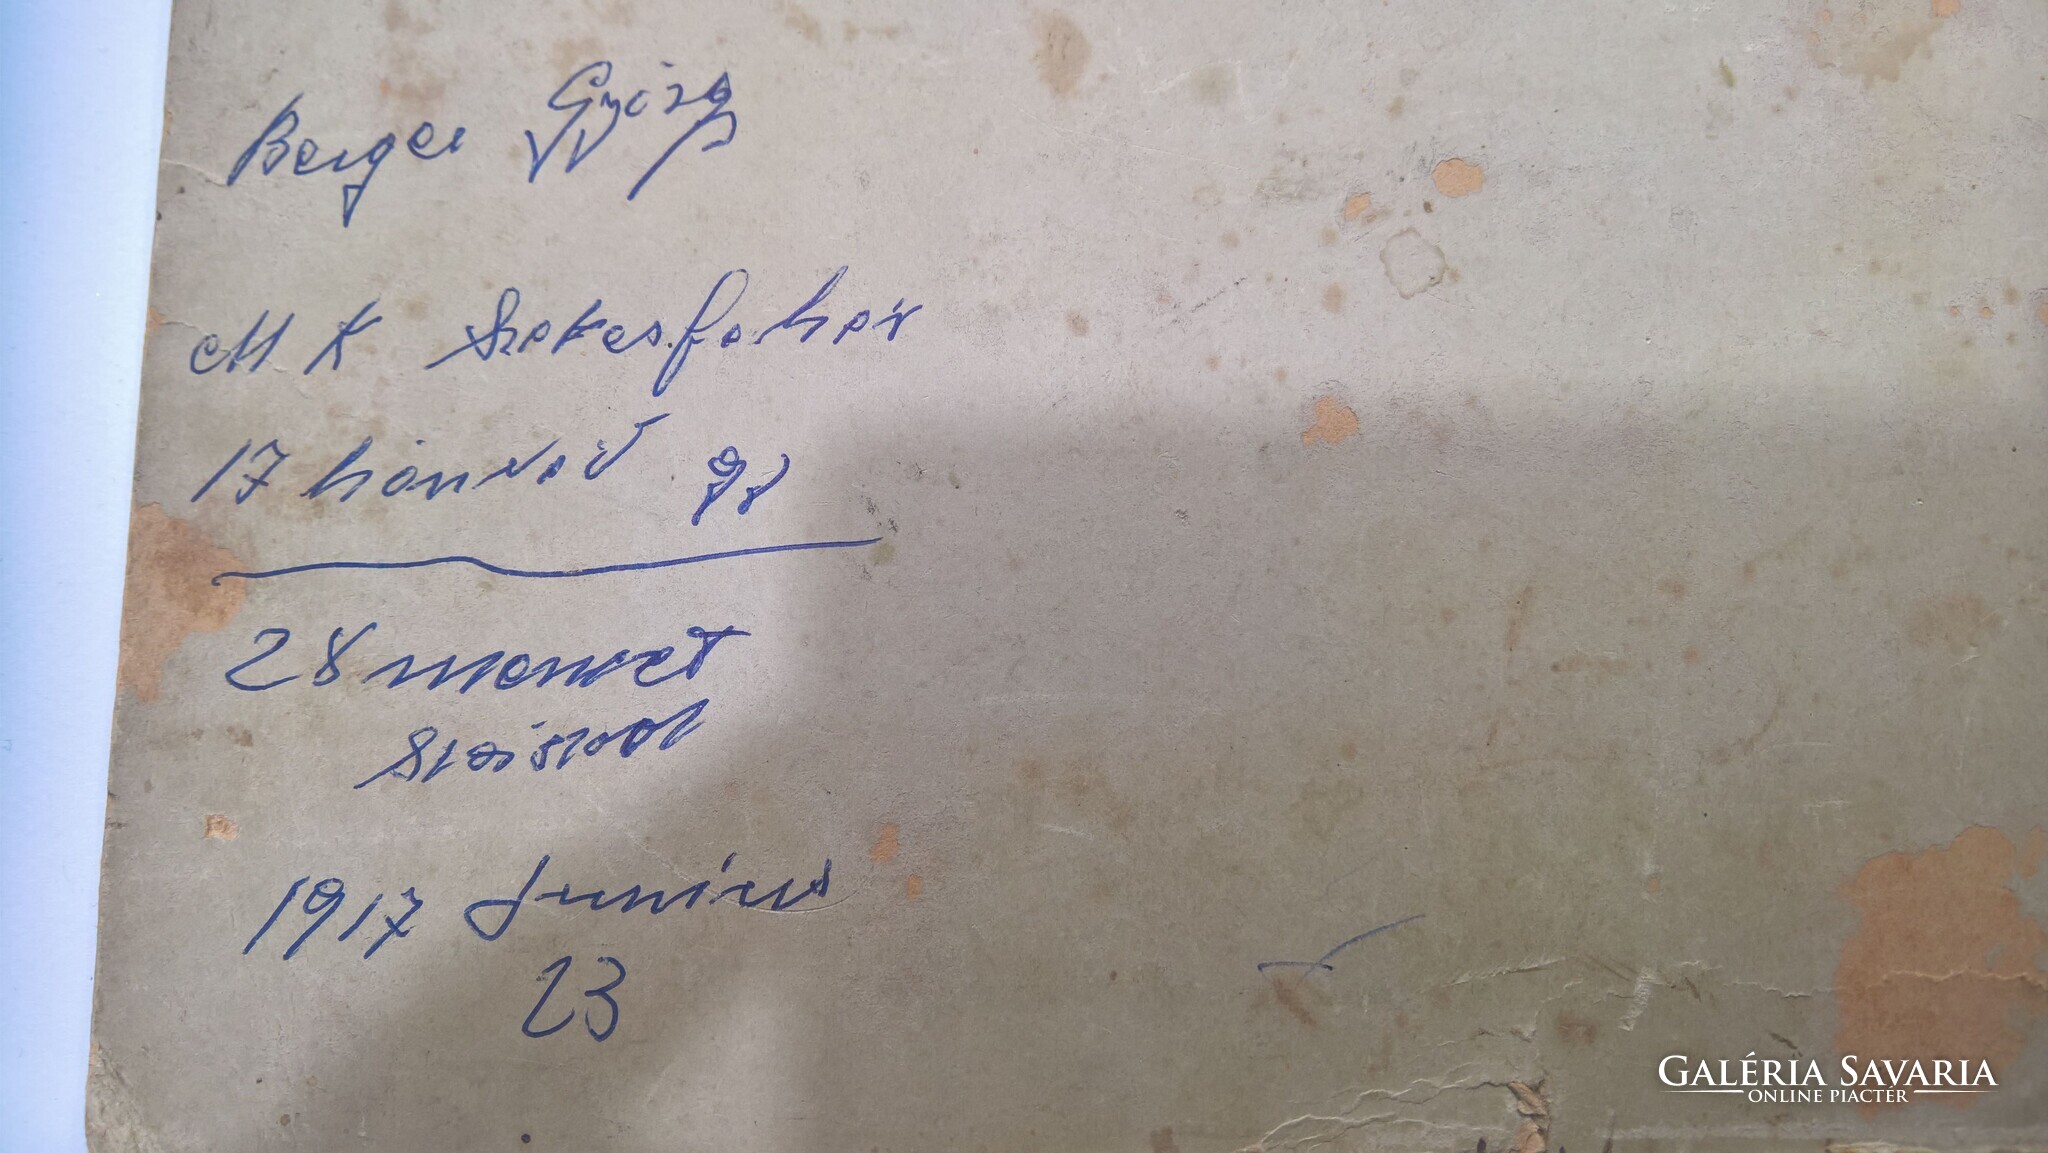 Berger György
M K Székesfehér
17 honvéd gy
28 menet
század
1917 Junius
23
GALÉRIA SAVARIA
ONLINE PIACTÉR